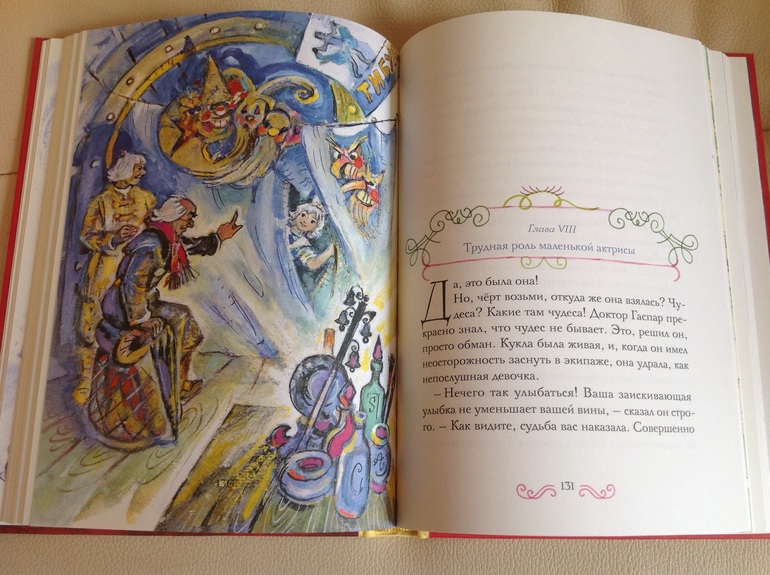 ТИБ
S
G
A
130
Глава VIII
Трудная роль маленькой актрисы
Да, это была она!
Но, чёрт возьми, откуда же она взялась? Чу-
деса? Какие там чудеса! Доктор Гаспар пре-
красно знал, что чудес не бывает. Это, решил он,
просто обман. Кукла была живая, и, когда он имел
неосторожность заснуть в экипаже, она удрала, как
непослушная девочка.
– Нечего так улыбаться! Ваша заискивающая
улыбка не уменьшает вашей вины, – сказал он стро-
го. – Как видите, судьба вас наказала. Совершенно
131